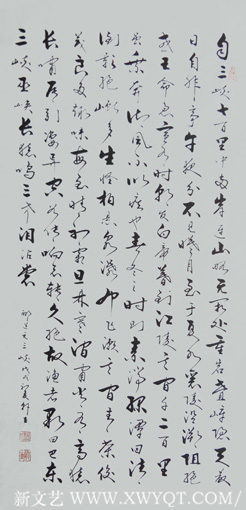 自三峡七百里中两岸连山略无阙处重岩叠嶂隐天蔽
日自非亭午夜分不见曦月至于夏水襄陵沿溯阻绝
或王命急宣有时朝发白帝暮到江陵其间千二百里
虽乘奔御风不以疾也春冬之时则素湍绿潭回清
倒影绝巘多生怪柏悬泉瀑布飞漱其间清荣峻
茂良多趣味每至晴初霜旦林寒涧肃常有高猿
长啸属引凄异空谷传响哀转久绝故渔者歌曰巴东
三峡巫峡长猿鸣三声泪沾裳
郦道元三峡戊戌夏
新文艺 · WWW.XWYQT.COM ·